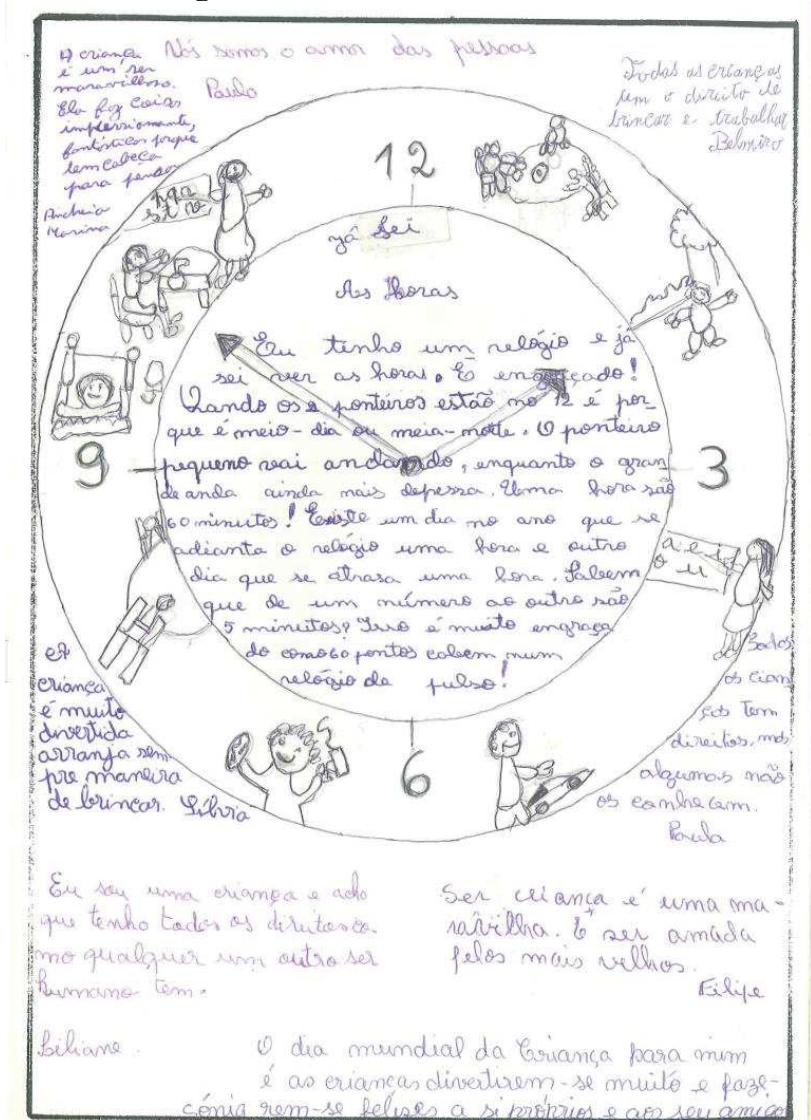 A criança
é um ser
maravilhoso.
Ela faz coisas
impressionante,
fantásticas porque
tem cabeça
para pensar
Andreia
Marina
Nós somos o amor das pessoas
Paulo
Todas as crianças
têm o direito de
brincar e trabalhar
Belmiro
12
já sei
As Horas
Eu tenho um relógio e já
sei ver as horas. É engraçado!
Quando os 2 ponteiros estão no 12 é por_
que é meio-dia ou meia-noite. O ponteiro
pequeno vai andando, enquanto o gran
de anda ainda mais depressa. Uma hora são
60 minutos! Existe um dia no ano que se
adianta o relógio uma hora e outro
dia que se atrasa uma hora. Sabem
que de um número ao outro são
5 minutos? Isso é muito engraça
do como 60 pontos cabem num
relógio de pulso!
9
3
6
a e i
o u
A
criança
é muito
divertida
arranja sem-
pre maneira
de brincar. Sílvia
Todos
os cian
ças tem
direitos, mas
algumas não
os conhecem.
Paula
Eu sou uma criança e acho
que tenho todos os direitos co-
mo qualquer um outro ser
humano tem.
Liliane.
Ser criança é uma ma-
ravilha. É ser amada
pelos mais velhos.
Filipe
O dia mundial da Criança para mim
é as crianças divertirem-se muito e faze-
cónia rem-se felizes a si próprios e aos seus amigos